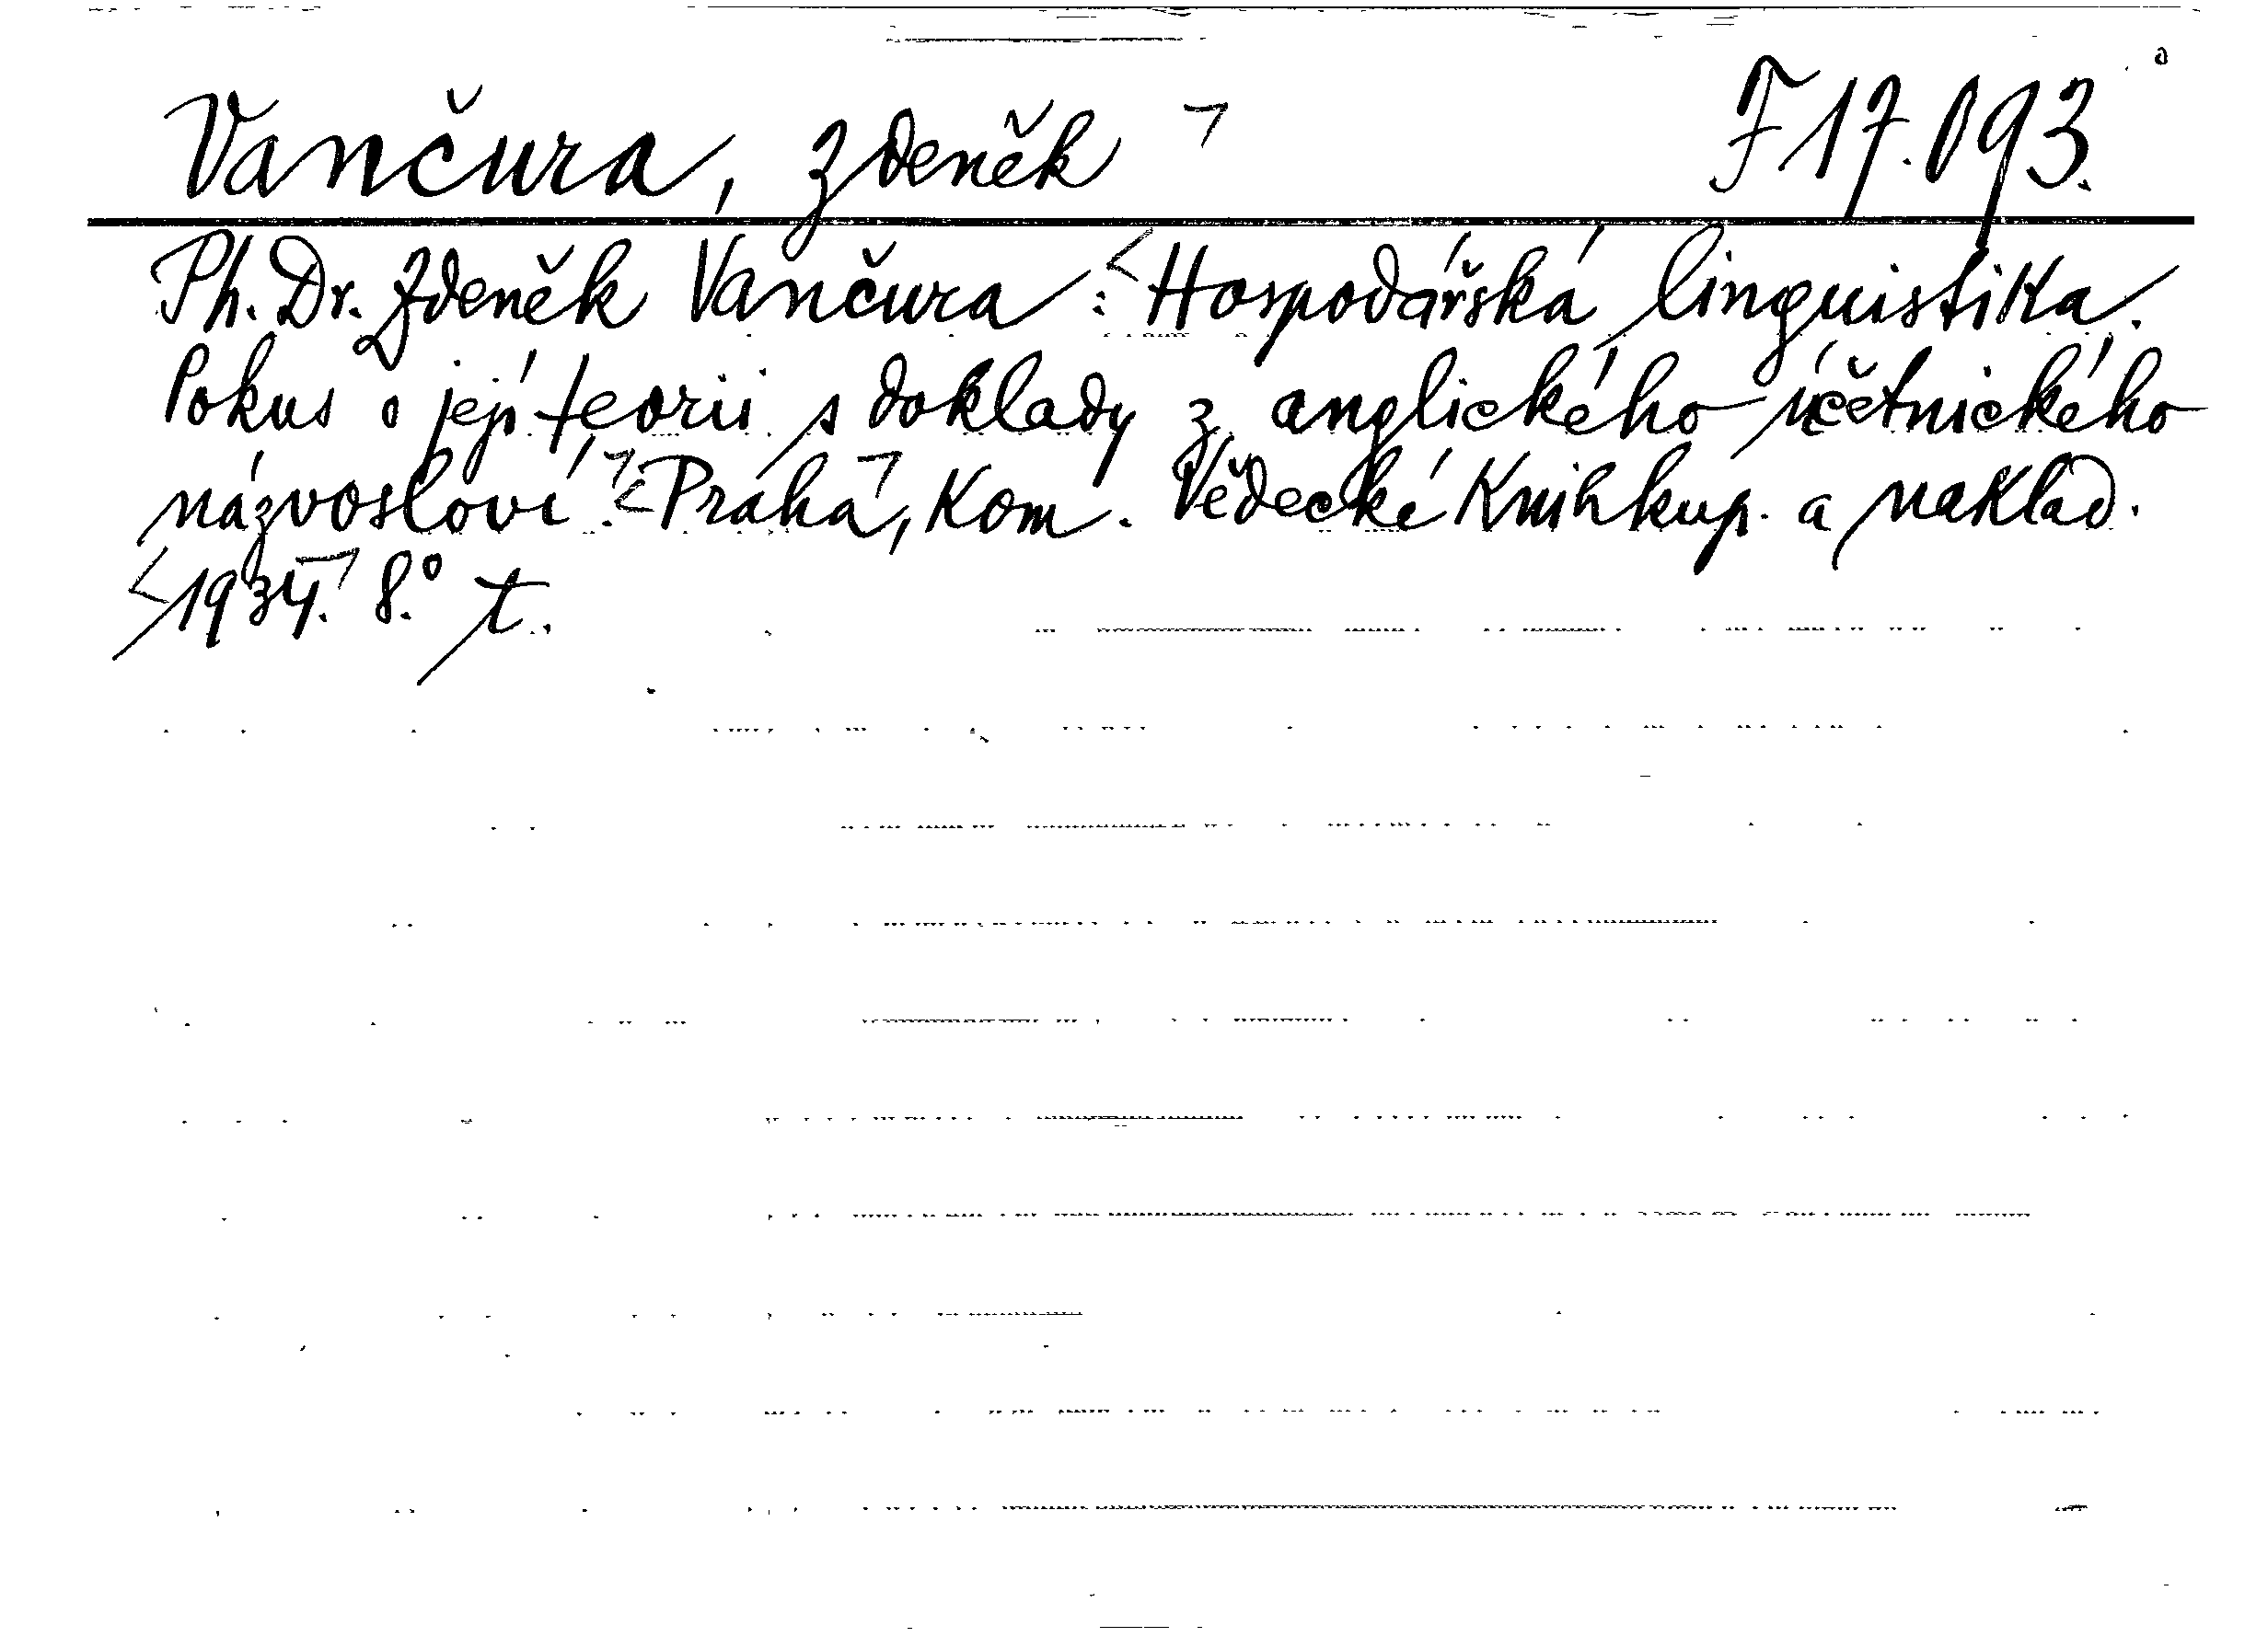 Vančura, Zdeněk ¬ F 17.093.
Ph. Dr. Zdeněk Vančura : <Hospodářská linguistika.
Pokus o její teorii s doklady z anglického účetnického
názvosloví.¬ <Praha¬, Kom. Vědecké Knihkup. a naklad.
<1934.¬ 8.° t.